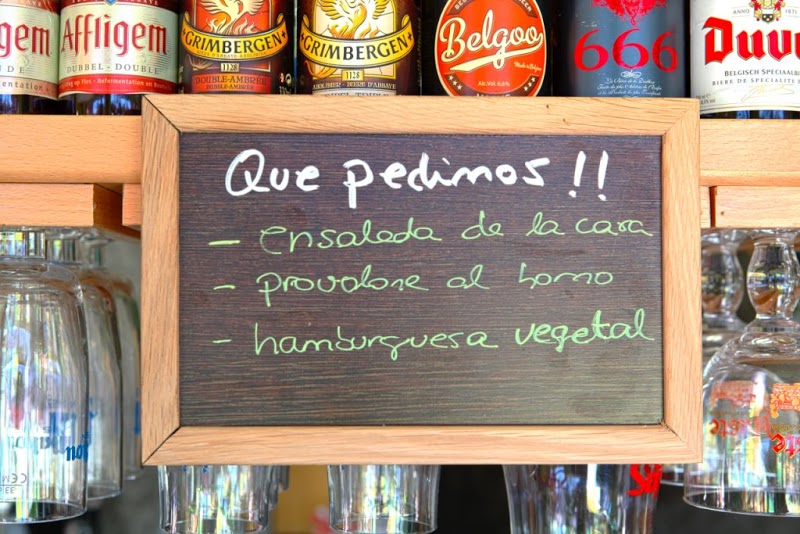 gem
Affligem
DUBBEL - DOUBLE
GRIMBERGEN
1128
DOUBLE-AMBRÉE
GRIMBERGEN
1128
Belgoo
666
Duv
BELGISCH SPECIAAL
Que pedimos !!
- ensalada de la casa
- provolone al horno
- hamburguesa vegetal